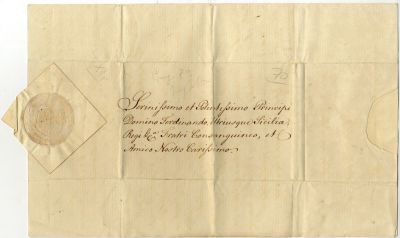 70
Serenissimo et Potentissimo Principi
Domino Ferdinando, Utriusque Siciliæ,
Regi &c. Fratri Consanguineo, et
Amico Nostro Carissimo.